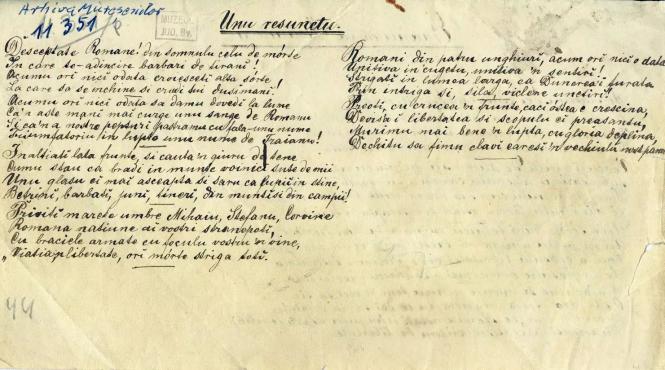 Arhiva Muresenilor
11351
MUZEUL
Unu resunetu.
Desceptate Romane! din somnulu celu de mórte
In care te-adincire barbari de tirani!
Acumu ori nici odata croiesceti alta sorte
La care sa se inchine si crudii tui dusimani!
Acumu ori nici odata sa damu dovedi la lume
Că'n aste mani mai curge unu sange de Romanu
Si că'n a nostre pepturi pastramu cu fala unu nume
Triumfatoriu in lupte unu nume de Traianu!
Inaltiati lata frunte, si cauta'n giuru de tene
Cumu stau ca bradi in munte voinici sute de mii
Unu glasu ei mai ascepta si saru ca lupii in stine,
Betrini, barbati, juni, tineri, din munti si din campii!
Priviti marete umbre Mihaiu, Stefanu, Corvine
Romana natiune ai vostri stranepoti,
Cu braciele armate cu foculu vostru'n vine,
„Viatia'n libertate, ori mórte striga toti.
Romani din patru unghiuri, acum ori nici o data
Uniti-va in cugetu, uniti-va'n sentiri!
Strigati in lumea larga, ca Dunerea-i furata
Prin intriga si, sila, viclene unetiri!
Preoti, cu crucea'n frunte, caci óstea e crescina,
Devisa-i libertatea si scopulu ei preasantu,
Murimu mai bene'n lupta, cu gloria deplina,
Dechitu sa fimu clavi earesi'n vechiulu nost pam
44